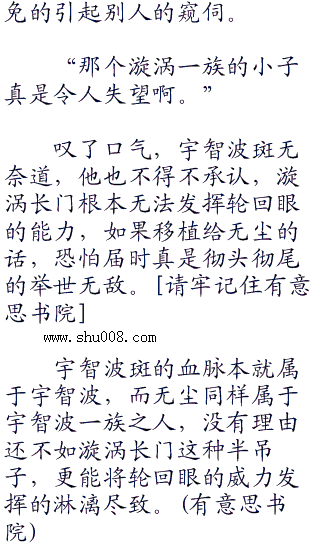 免的引起别人的窥伺。
“那个漩涡一族的小子
真是令人失望啊。”
叹了口气，宇智波斑无
奈道，他也不得不承认，漩
涡长门根本无法发挥轮回眼
的能力，如果移植给无尘的
话，恐怕届时真是彻头彻尾
的举世无敌。[请牢记住有意
思书院]
www.shu008.com
宇智波斑的血脉本就属
于宇智波，而无尘同样属于
宇智波一族之人，没有理由
还不如漩涡长门这种半吊
子，更能将轮回眼的威力发
挥的淋漓尽致。(有意思书
院)